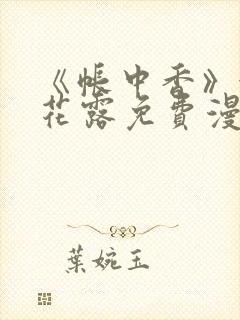 《帳中香》
花露免費漫
葉婉玉